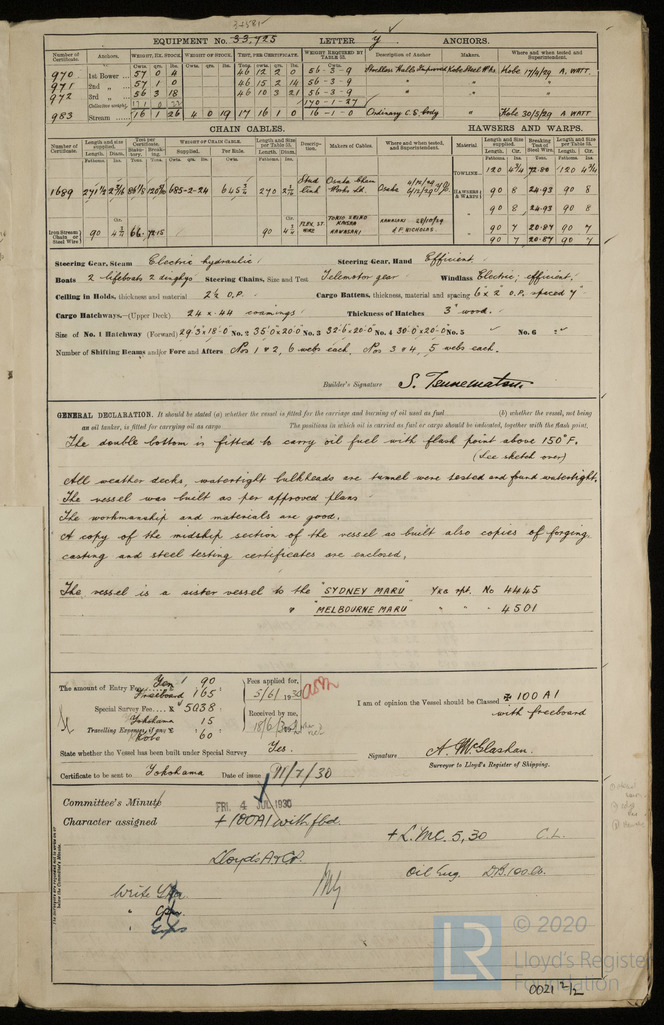 32585
EQUIPMENT No. 33,725 LETTER y ANCHORS.
Number of Certificate. Anchors. WEIGHT, EX. STOCK. WEIGHT OF STOCK. TEST, PER CERTIFICATE. WEIGHT REQUIRED BY TABLE 53. Description of Anchor Makers. Where and when tested and Superintendent.
970 1st Bower 57 0 4 46 12 2 0 56-3-9 Stockless Halls Improved Kobe Steel Wks Kobe 17/4/29 A. WATT.
971 2nd 〃 57 1 0 46 15 2 14 56-3-9 〃 〃 〃
972 3rd 〃 56 3 18 46 10 3 21 56-3-9 〃 〃 〃
Collective weight 171 0 22 170-1-27
983 Stream 16 1 26 4 0 19 17 16 1 0 16-1-0 Ordinary C.S. Body 〃 Kobe 30/5/29 A WATT
CHAIN CABLES. HAWSERS AND WARPS.
Number of Certificate. Length and size supplied. Test per Certificate. WEIGHT OF CHAIN CABLE. Length and Size per Table 53. Description. Makers of Cables. Where and when tested, and Superintendent. Material Length and size supplied. Breaking Test of Steel Wire. Length and size per Table 53.
Fathoms. Diam. Statutory. Breaking. Supplied. Per Rule. Fathoms. Diam. Fathoms Cir.
TOWLINE 120 4¾ 72.80 120 4¾
1689 685-2-24 645¾ 270 Stud Link Osaka Chain Works Ld. Osaka
HAWSERS & WARPS 90 8 24.93 90 8
〃 90 8 24.93 90 8
Iron Stream Chain or Steel Wire 90 4¾ 66. 90 4¾ FLEX. ST. WIRE TOKIO SEIKO KAISHA KAWASAKI KAWASAKI 28/10/29 J.F. NICHOLAS.
〃 90 7 20.87 90 7
90 7 20.87 90 7
Steering Gear, Steam Electric hydraulic Steering Gear, Hand Efficient.
Boats 2 lifeboats 2 dinghys Steering Chains, Size and Test Telemotor gear Windlass Electric; efficient.
Ceiling in Holds, thickness and material 2½ O.P. Cargo Battens, thickness, material and spacing 6" x 2" O.P. spaced 9"
Cargo Hatchways.—(Upper Deck) 24 x .44 coamings Thickness of Hatches 3" wood.
Size of No. 1 Hatchway (Forward) 29'.3 x 18'.0 No. 2 35'.0 x 20'.0 No. 3 32'.6 x 20'.0 No. 4 30'.0 x 20'.0 No. 5 No. 6
Number of Shifting Beams and/or Fore and Afters Nos 1 & 2, 6 webs each, Nos 3 & 4, 5 webs each.
Builder's Signature
GENERAL DECLARATION. It should be stated (a) whether the vessel is fitted for the carriage and burning of oil used as fuel (b) whether the vessel, not being
an oil tanker, is fitted for carrying oil as cargo The positions in which oil is carried as fuel or cargo should be indicated, together with the flash point.
The double bottom is fitted to carry oil fuel with flash point above 150°F.
(See sketch over)
All weather decks, watertight bulkheads are tunnel were tested and found watertight.
The vessel was built as per approved plans
The workmanship and materials are good.
A copy of the midship section of the vessel as built also copies of forging,
casting and steel testing certificates are enclosed.
The vessel is a sister vessel to the "SYDNEY MARU" Yka rpt. No 4445
& "MELBOURNE MARU" 〃 〃 〃 4501
The amount of Entry Fee Yen 90 Fees applied for,
Freeboard 165 5/6/1930
Special Survey Fee 5038 Received by me,
Yokohama 15 18/6/30
Travelling Expenses, if any Kobe 60
I am of opinion the Vessel should be Classed ✠ 100 A1
with freeboard
State whether the Vessel has been built under Special Survey Yes. Signature A. McGlashan.
Surveyor to Lloyd's Register of Shipping.
Certificate to be sent to Yokohama Date of issue 11/7/30
Committee's Minute FRI. 4 JUL 1930
Character assigned + 100A1 with fbd.
+ L.M.C. 5,30 C.L.
Lloyd's A & CP.
Oil Eng. D.B. 100 lb.
Write
© 2020
LR Lloyd's Register
Foundation
0021 2/2